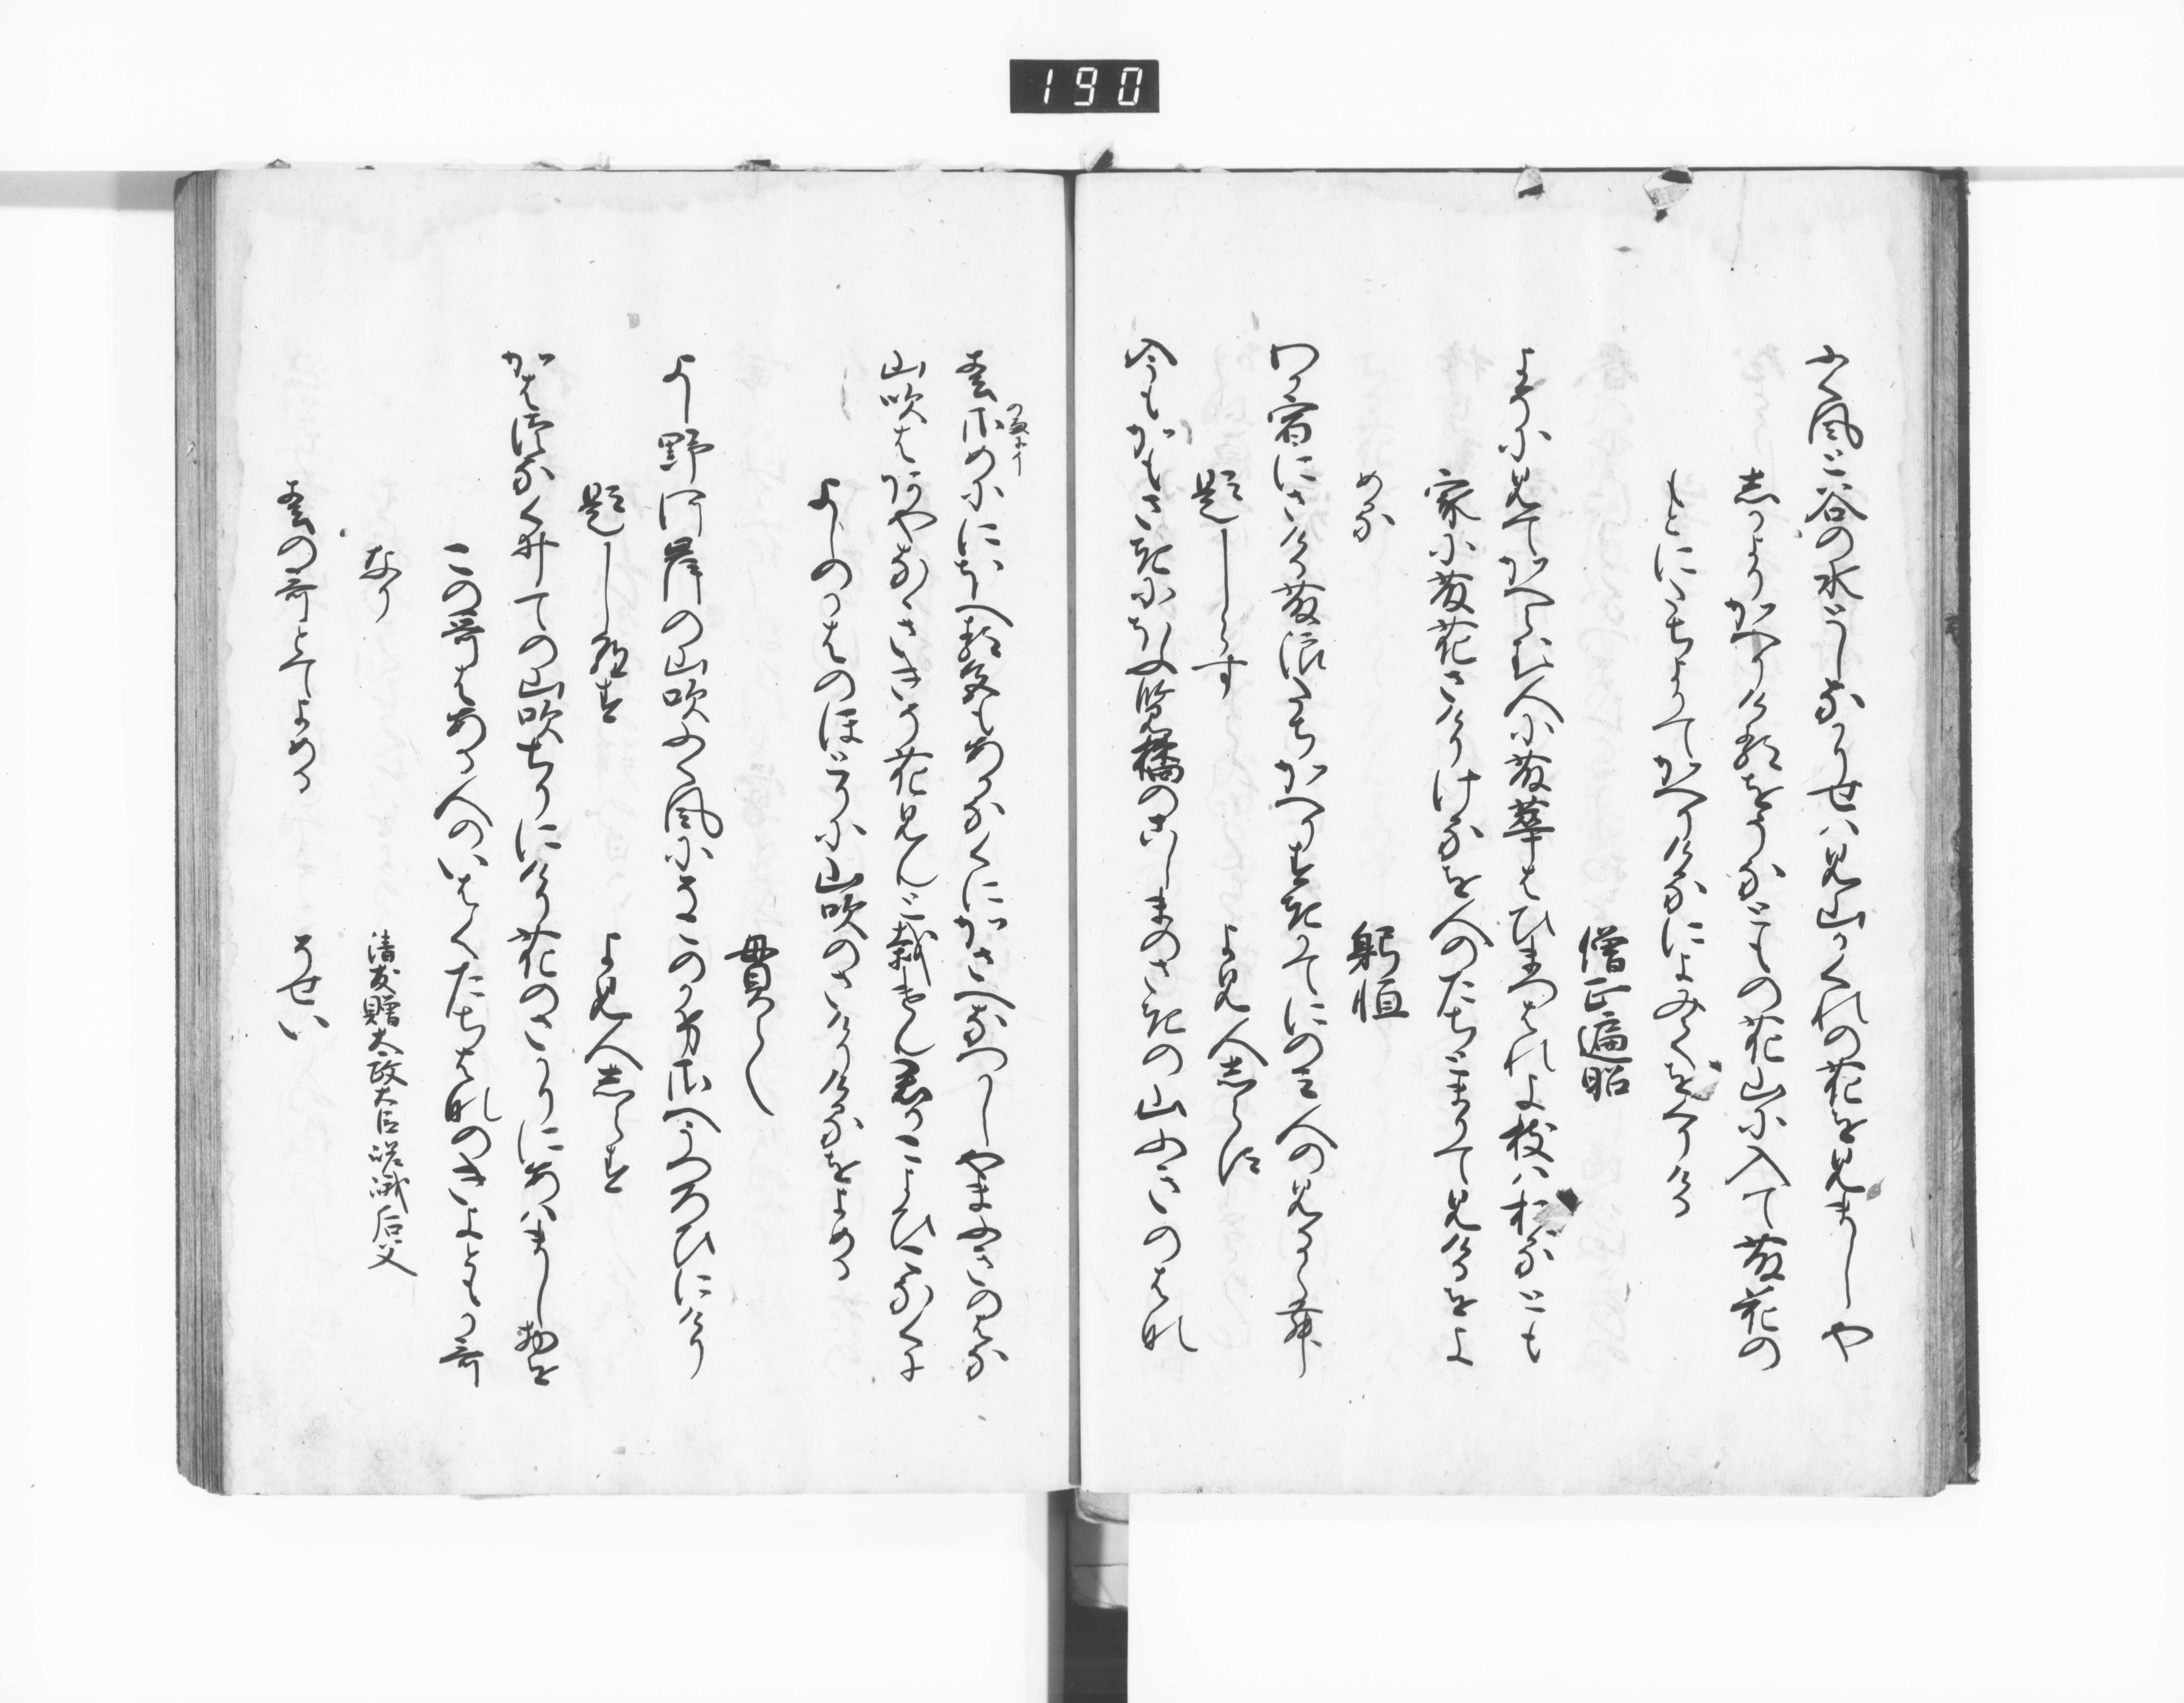 190
ふく風と谷の水としなかりせは見山かくれの花を見ましや
志かよりかへりける女ともの花山に入て藤花の
もとにたちよりてかへりけるによみてをくりける
僧正遍昭
よそに見てかへらむ人に藤の花はひまつはれよ枝はおるとも
家に藤花さけりけるを人のたちとまりて見けるをよ
める
躬恒
わか宿にさける藤浪たちかへりすきかてにのみ人の見るらむ
題しらす
よみ人志らす
今もかもさきにほふ覧橘のこしまのさきの山ふきのはな
春雨のにほへる色もあかなくにかさへなつかしやまふきのはな
山吹はあやなゝさきそ花見んと栽けん君かこよひこなくに
よしのかはのほとりに山吹のさけりけるをよめる
貫之
よし野河岸の山吹ふく風にそこの影さへうつろひにけり
題しらす
よみ人志らす
かはつなくゐての山吹ちりにけり花のさかりにあはまし物を
この哥はある人のいはくたちはなのきよともか哥
なり
清友贈太政大臣嵯峨后父
春の哥とてよめる
そせい